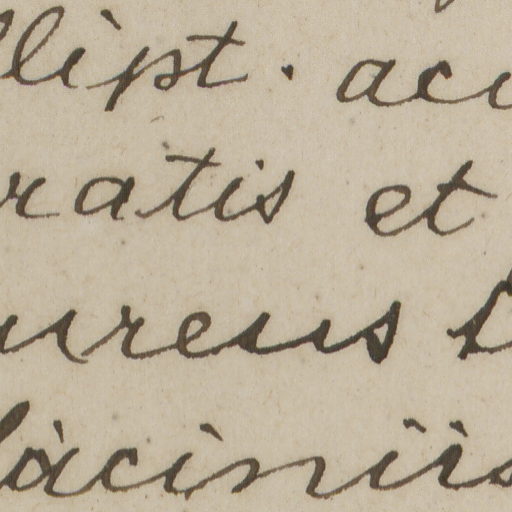 llipt. acu
ratis et
ureus
laciniis